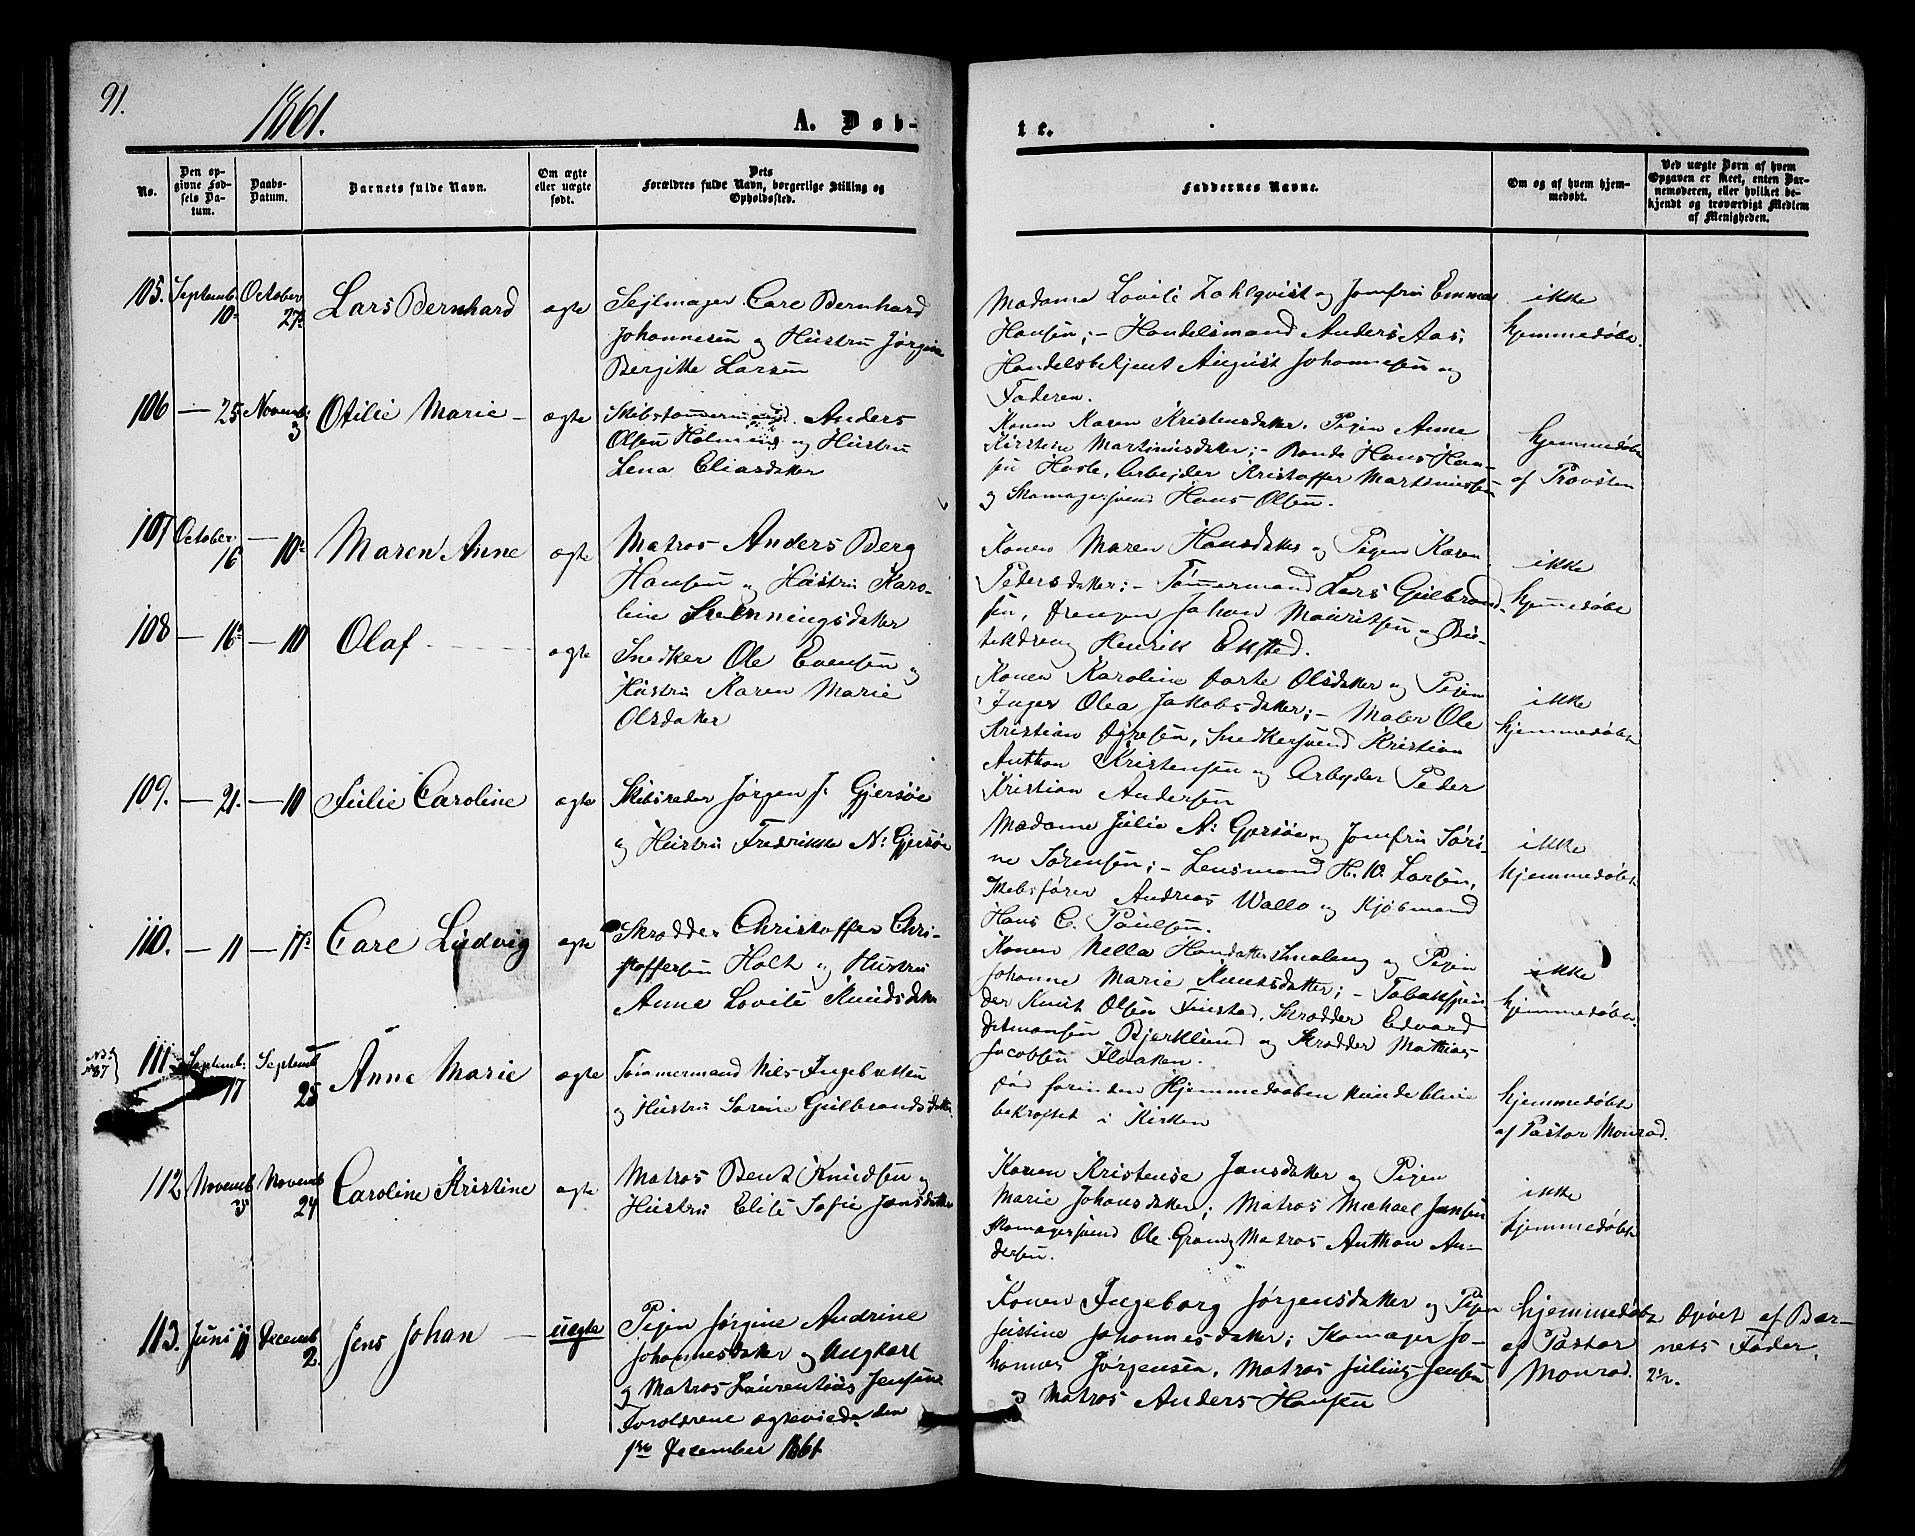 91.
1861.
A. Døb-
te.
No.
Den op-
givne Fød-
sels Da-
tum.
Daabs-
Datum.
Barnets fulde Navn.
Om ægte
eller uægte
født.
Dets
Forældres fulde Navn, borgerlige Stilling og
Opholdssted.
Faddernes Navne.
Om og af hvem hjem-
medøbt.
Ved uægte Børn af hvem
Opgaven er skeet, enten Bar-
nemoderen, eller hvilket be-
kjendt og troværdigt Medlem
af Menigheden.
105.
Septemb.
10
October
27
Lars Bernhard
ægte
Sejlmager Carl Bernhard
Johannesen og Hustru Jørgine
Bergitte Larsen
Madame Lovise Zahlqvist og Jomfru Emma
Hansen; - Handelsmand Anders Aas,
Handelsbetjent August Johannesen og
Faderen.
ikke
hjemmedøbt.
106
— 25
Novemb.
3
Otilie Marie
ægte
Skibstømmermand Anders
Olsen og Hustru
Lena Eliasdatter
Konen Karen Kristensdatter, Pigen Anne
Kirstine Martinusdatter; - Bonde Hans Han-
sen Hasle, Arbejder Kristoffer Martiniussen
og Skomagersvend Hans Olsen.
hjemmedøbt
af Provsten
107
October
16
— 10
Maren Anne
ægte
Matros Anders Berg
Hansen og Hustru Karo-
line Svenningsdatter
Konen Maren Hansdatter og Pigen Karen
Pedersdatter; - Tømmermand Lars Gulbrand-
sen, Drengen Johan Mauritsen og Dis-
tektdreng Henrik Eksted.
ikke
hjemmedøbt
108
— 16
— 10
Olaf
ægte
Snedker Ole Evensen og
Hustru Karen Marie
Olsdatter
Konen Karoline Dorte Olsdatter og Pigen
Inger Olea Jakobsdatter; - Maler Ole
Kristian Svendsen, Snedkersvend Kristian
Anthon Kristensen og Arbejder Peder
Kristian Andersen
ikke
hjemmedøbt
109.
— 21.
— 10
Julie Caroline
ægte
Skibsreder Jørgen J. Gjersøe
og Hustru Fredrikke N: Gjersøe
Madame Julie A: Gjersøe og Jomfru Søri-
ne Sørensen; - Lensmand H. W. Larsen,
Skibsfører Andreas Wallo og Kjøbmand
Hans C. Paulsen.
ikke
hjemmedøbt
110.
— 11
— 17
Carl Ludvig
ægte
Skrædder Christoffer Chri-
stoffersen Holt og Hustru
Anne Lovise Knudsdatter
Konen Nella Hansdatter Smaleng og Pigen
Johanne Marie Knutsdatter; - Tobakspin-
der Knut Olsen Finstad, Skrædder Edvard
Ditmansen Bjerklund og Skrædder Mathias
Jacobsen Flaaten.
ikke
hjemmedøbt.
No
87
111.
Septemb.
17
Septemb
25
Anne Marie
ægte
Tømmermand Nils Ingebretsen
og Hustru Sørine Gulbrandsdatter
død forinden Hjemmedaaben kunde blive
bekræftet i Kirken
hjemmedøbt
af Pastor Monrad.
112
Novemb
3
Novemb
24
Caroline Kristine
ægte
Matros Bent Knudsen og
Hustru Elise Sofie Jansdatter
Konen Kristense Jansdatter og Pigen
Marie Johansdatter; Matros Michael Jansen
Skomagersvend Ole Gram og Matros Anthon An-
dersen.
ikke
hjemmedøbt
113.
Juni 11
Decemb
2.
Jens Johan
uægte
Pigen Jørgine Andrine
Johannesdatter og Ungkarl
og Matros Laurentius Jensen
Forældrene ægteviede den
1ste December 1861
Konen Ingeborg Jørgensdatter og Pigen
Justine Johannesdatter; Skomager Jo-
hannes Jørgensen, Matros Julius Jensen
og Matros Anders Hansen
hjemmedøbt
af Pastor
Monrad.
Opgivet af Bar-
nets Fader.